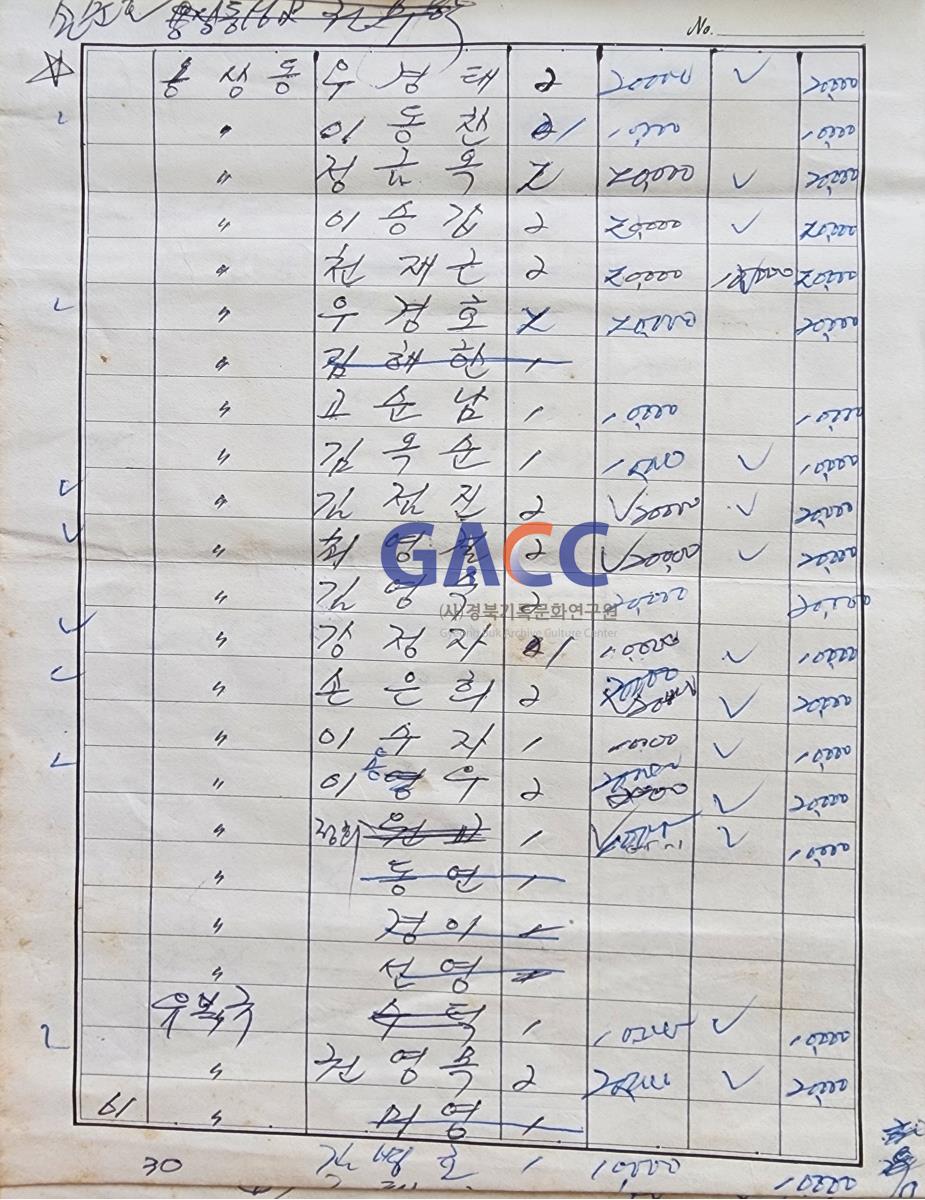 No.
용상동 우경태 2 20000 ✓ 20000
〃 이동찬 1 10000 10000
〃 정금옥 2 20000 ✓ 20000
〃 이승갑 2 20000 ✓ 20000
〃 천재근 2 20000 20000
〃 우경호 2 20000 20000
〃 김해한 1
〃 고순남 1 10000 10000
〃 김옥순 1 10000 ✓ 10000
〃 김점진 2 20000 ✓ 20000
〃 최영 2 20000 ✓ 20000
GACC
〃 김영 2 20000 20000
(사)경북기록문화연구원
Gyeongbuk Archive Culture Center
〃 강정자 1 10000 ✓ 10000
〃 손은희 2 20000 ✓ 20000
〃 이수자 1 10000 ✓ 10000
〃 이영우 2 20000 ✓ 20000
〃 1 ✓ 10000
〃 동연 1
〃 경이 1
〃 선영 1
우복국 수택 1 10000 ✓ 10000
〃 권영옥 2 20000 ✓ 20000
61 〃 미영 1
30 김병호 1 10000 10000